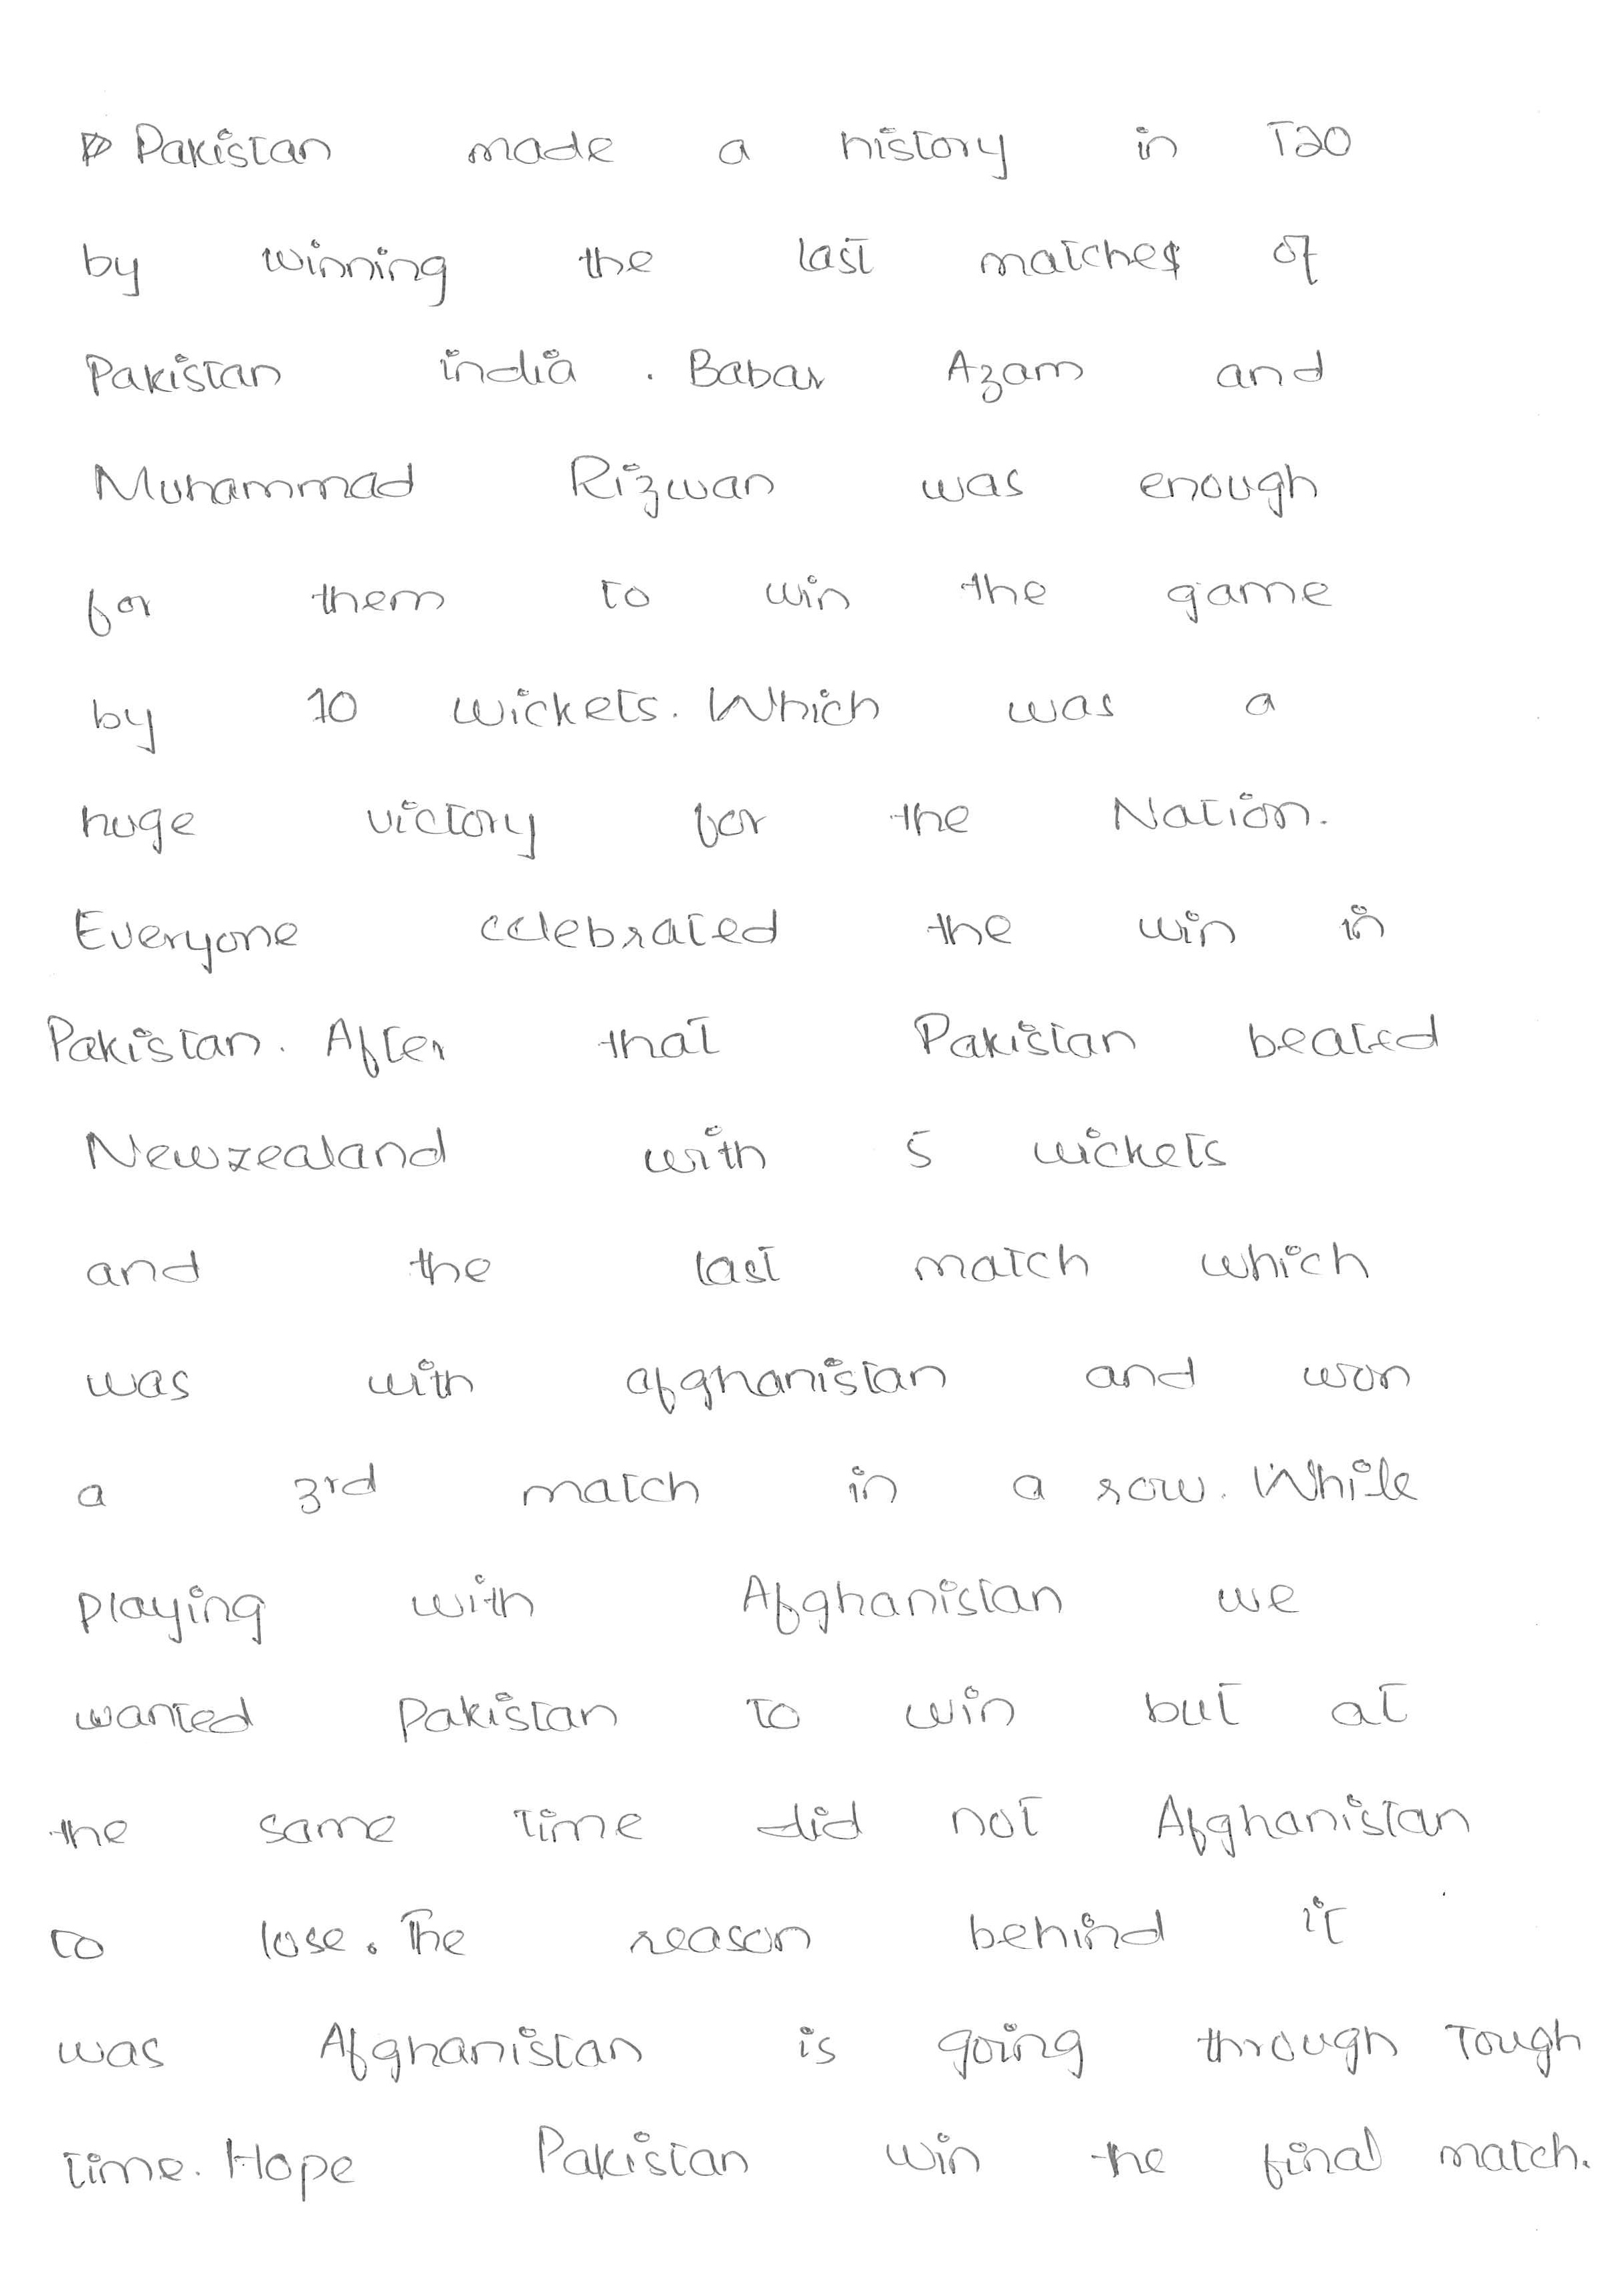 Pakistan made a history in T20
by winning the last matches of
Pakistan india . Babar Azam and
Muhammad Rizwan was enough
for them to win the game
by 10 wickets. Which was a
huge victory for the Nation.
Everyone celebrated the win in
Pakistan. After that Pakistan beated
Newzealand with 5 wickets
and the last match which
was with afghanistan and won
a 3rd match in a row. While
playing with Afghanistan we
wanted Pakistan to win but at
the same time did not Afghanistan
to lose. The reason behind it
was Afghanistan is going through Tough
time. Hope Pakistan win the final match.